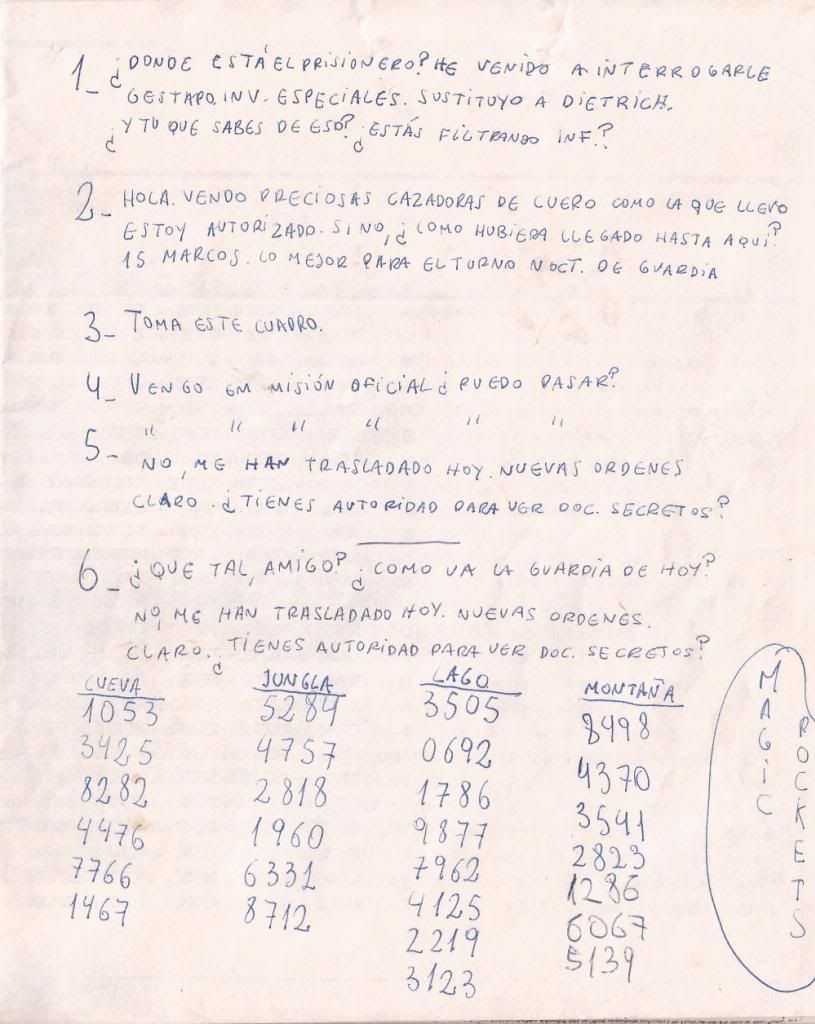 1_ ¿DONDE ESTÁ EL PRISIONERO? HE VENIDO A INTERROGARLE
GESTAPO. INV. ESPECIALES. SUSTITUYO A DIETRICH.
¿Y TU QUE SABES DE ESO? ¿ESTÁS FILTRANDO INF.?
2_ HOLA. VENDO PRECIOSAS CAZADORAS DE CUERO COMO LA QUE LLEVO
ESTOY AUTORIZADO. SI NO, ¿COMO HUBIERA LLEGADO HASTA AQUÍ?
15 MARCOS. LO MEJOR PARA EL TURNO NOCT. DE GUARDIA
3_ TOMA ESTE CUADRO.
4_ VENGO EM MISIÓN OFICIAL ¿PUEDO PASAR?
5_ " " " " " "
NO, ME HAN TRASLADADO HOY. NUEVAS ORDENES
CLARO. ¿TIENES AUTORIDAD PARA VER DOC. SECRETOS?
6_ ¿QUE TAL, AMIGO? ¿COMO VA LA GUARDIA DE HOY?
NO, ME HAN TRASLADADO HOY. NUEVAS ORDENES.
CLARO. ¿TIENES AUTORIDAD PARA VER DOC. SECRETOS?
CUEVA JUNGLA LAGO MONTAÑA
1053 5284 3505 8498
3425 4757 0692 4370
8282 2818 1786 3541
4476 1960 9877 2823
7766 6331 7962 1286
1467 8712 4125 6067
2219 5139
3123
MAGIC
ROCKETS